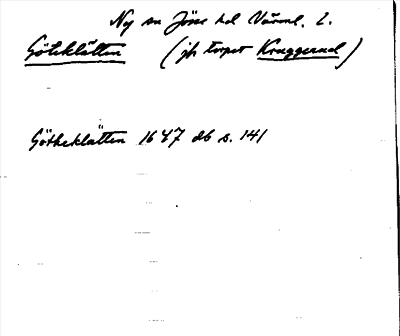 Ny sn Jösse hd Värml. l.
Göteklätten (jfr torpet Kruggerud)
Götheklätten 1647 db s. 141